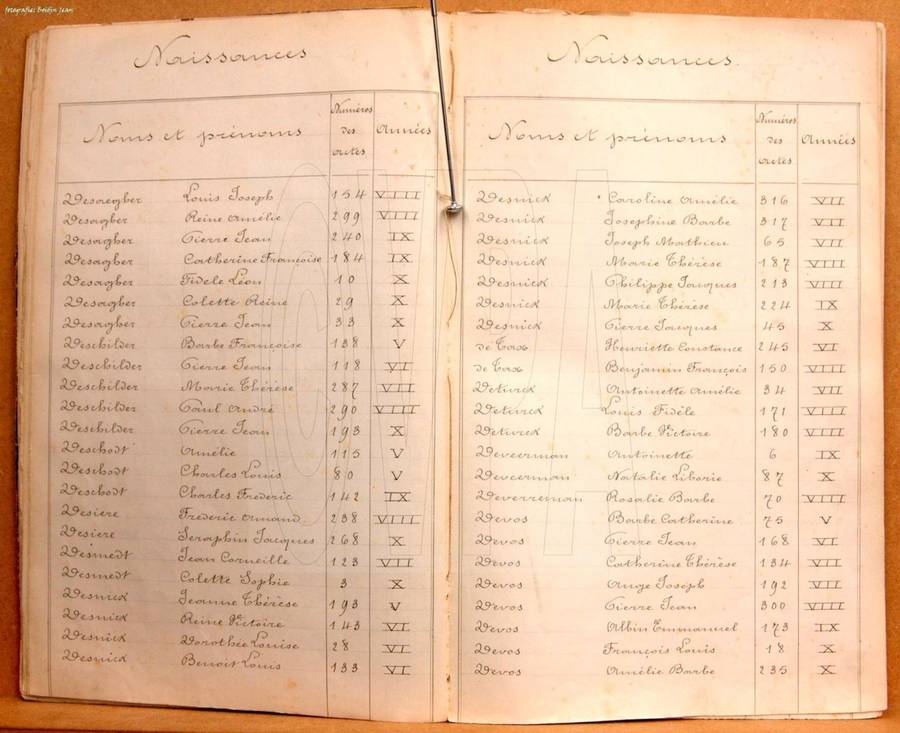 fotografie: Beidjn Jean
Naissances
Noms et prénoms Numéros des actes Années
Desaegher Louis Joseph 154 VIII
Desagher Reine Amélie 299 VIII
Desagher Pierre Jean 240 IX
Desagher Catherine Françoise 184 IX
Desagher Fidele Léon 10 X
Desagher Colette Reine 29 X
Desagher Pierre Jean 33 X
Deschilder Barbe Françoise 138 V
Deschilder Pierre Jean 118 VI
Deschilder Marie Thérèse 287 VII
Deschilder Paul André 290 VIII
Deschilder Pierre Jean 193 X
Deschodt Amélie 115 V
Deschodt Charles Louis 80 V
Deschodt Charles Frederic 142 IX
Desiere Frederic Armand 238 VIII
Desiere Seraphin Jacques 268 X
Desmedt Jean Corneille 123 VII
Desmedt Colette Sophie 3 X
Desnick Jeanne Thérèse 193 V
Desnick Reine Victoire 143 VI
Desnick Dorothée Louise 28 VI
Desnick Benoit Louis 133 VI
Naissances
Noms et prénoms Numéros des actes Années
Desnick Caroline Amélie 316 VII
Desnick Josephine Barbe 317 VII
Desnick Joseph Mathieu 65 VII
Desnick Marie Thérèse 187 VIII
Desnick Philippe Jacques 213 VIII
Desnick Marie Thérèse 224 IX
Desnick Pierre Jacques 45 X
de Tax Henriette Constance 245 VI
de Tax Benjamin François 150 VIII
Deturck Antoinette Amélie 34 VII
Deturck Louis Fidèle 171 VIII
Deturck Barbe Victoire 180 VIII
Deveerman Antoinette 6 IX
Deveerman Natalie Liborie 87 X
Deverreman Rosalie Barbe 70 VIII
Devos Barbe Catherine 75 V
Devos Pierre Jean 168 VI
Devos Catherine Thérèse 134 VII
Devos Ange Joseph 192 VII
Devos Pierre Jean 300 VIII
Devos Albin Emmanuel 173 IX
Devos François Louis 18 X
Devos Amélie Barbe 235 X